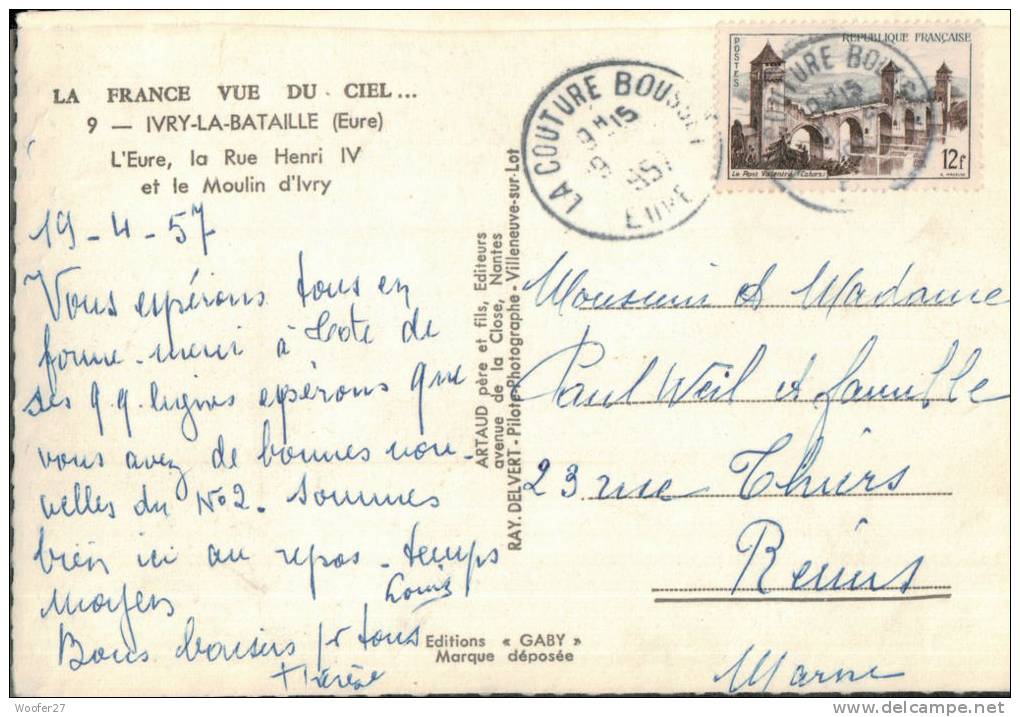 LA FRANCE VUE DU CIEL...
9 — IVRY-LA-BATAILLE (Eure)
L'Eure, la Rue Henri IV
et le Moulin d'Ivry
19-4-57
Vous espérons tous en
forme. merci à
ses q.q. lignes espérons que
vous avez de bonnes nou-
velles du No2. Sommes
bien ici au repos. temps
moyen
Louis
Bons baisers pr tous
Thérèse
ARTAUD père et fils, Editeurs
avenue de la Close, Nantes
RAY. DELVERT - Pilote-Photographe - Villeneuve-sur-Lot
Editions « GABY »
Marque déposée
LA COUTURE BOUSSEY
EURE
POSTES
REPUBLIQUE FRANÇAISE
Le Pont Valentré (Cahors)
12f
Monsieur et Madame
Paul Weil et famille
23 rue Thiers
Reims
Marne
Woofer27
delcampe.net